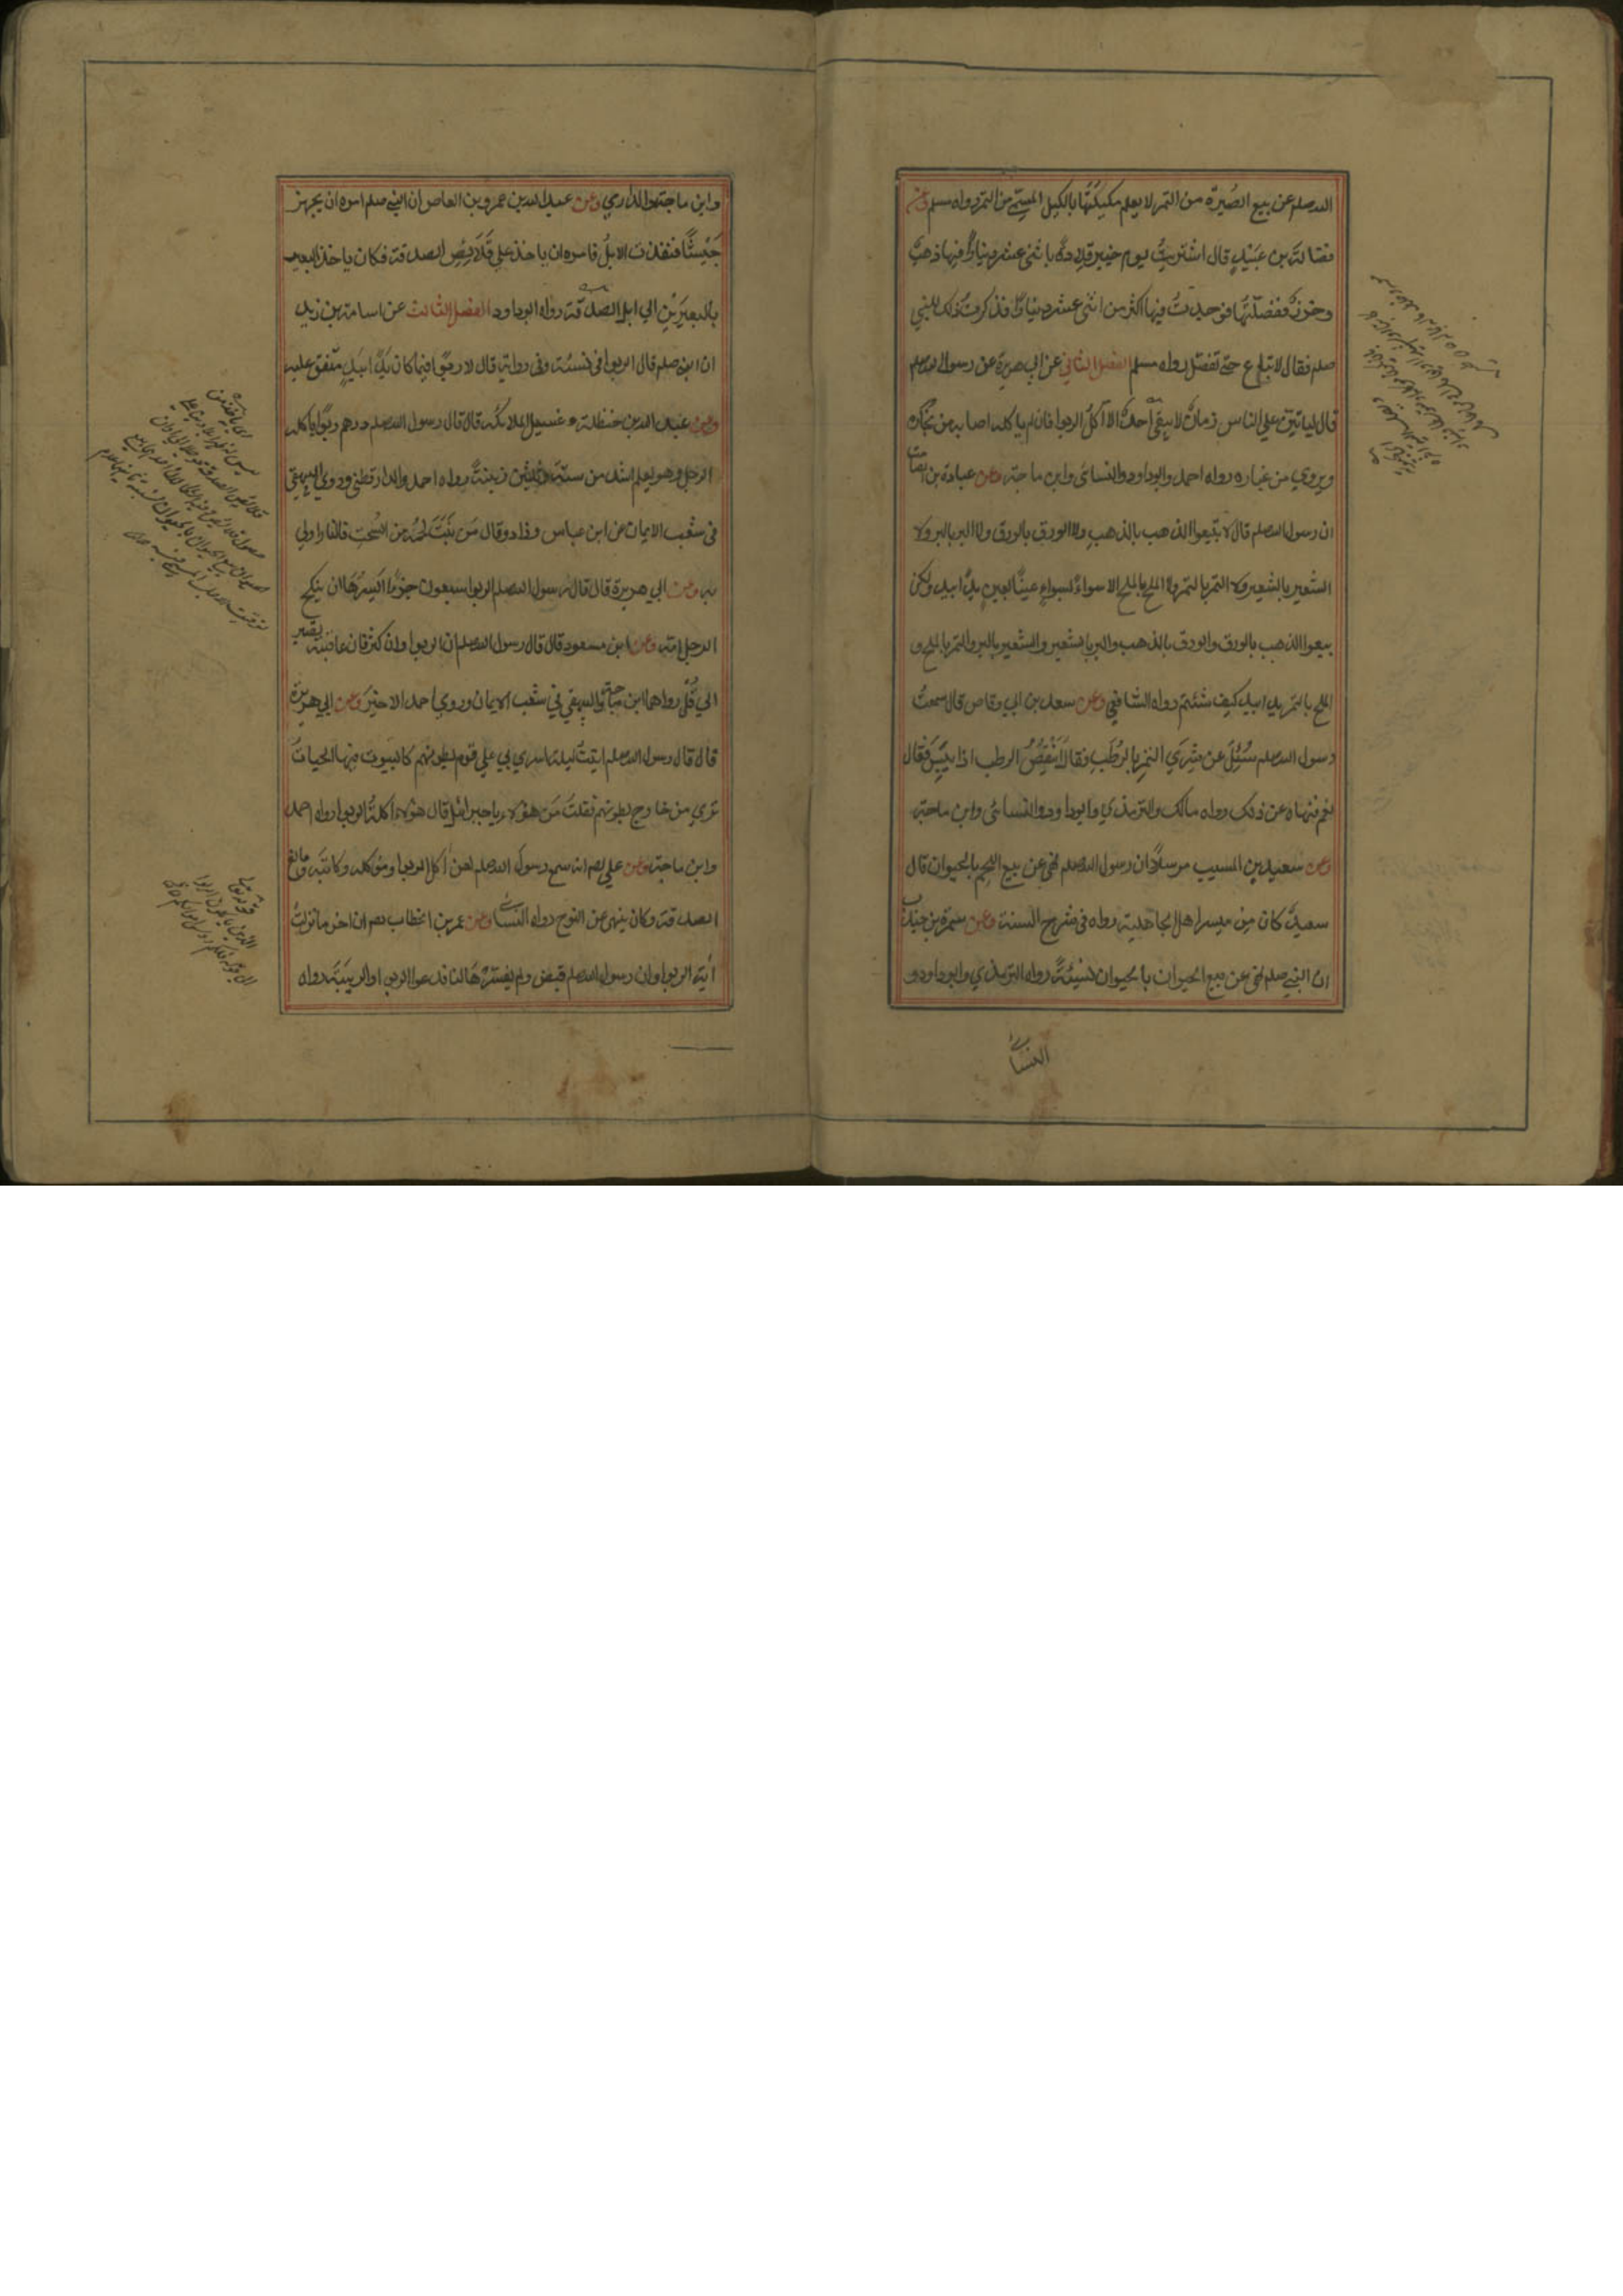 الله صلعم عن بيع الصُبرة من التمر لا يعلم مكيلتُها بالكيل المسمّى من التمر رواه مسلم وعن
فضالة بن عُبَيدٍ قال اشتريتُ يوم خيبر قلادةً باثنى عشر دينارًا فيها ذهبٌ
وخرزٌ ففصلتُها فوجدتُ فيها اكثر من اثنى عشر دينارًا فذكرتُ ذلك للنبي
صلعم فقال لا تباع حتى تفصّل رواه مسلم الفصل الثاني عن ابي هريرة عن رسول الله صلعم
قال لياتينّ على الناس زمانٌ لا يبقى احدٌ الا آكل الربوا فان لم ياكله اصابه من بخاره
ويروي من غباره رواه احمد وابوداود والنسائى وابن ماجة وعن عبادة بن الصامت
ان رسول الله صلعم قال لا تبيعوا الذهب بالذهب ولا الورق بالورق ولا البر بالبر ولا
الشعير بالشعير ولا التمر بالتمر ولا الملح بالملح الا سواءً بسواءٍ عينًا بعينٍ يدًا بيد ولكن
بيعوا الذهب بالورق والورق بالذهب والبر بالشعير والشعير بالبر والتمر بالملح و
الملح بالتمر يدا بيد كيف شئتم رواه الشافعي وعن سعد بن ابي وقاص قال سمعتُ
رسول الله صلعم سُئِلَ عن شِرَي التمر بالرُطَبِ فقال أَيَنْقِصُ الرطب اذا يَبِسَ فقال
نعم فنهاه عن ذلك رواه مالك والترمذي وابوداود والنسائى وابن ماجة
وعن سعيد بن المسيب مرسلاً ان رسول الله صلعم نهى عن بيع اللحم بالحيوان قال
سعيدٌ كان من ميسر اهل الجاهلية رواه فى شرح السنة وعن سمرة بن جندب
ان النبي صلعم نهى عن بيع الحيوان بالحيوان نسيئةً رواه الترمذي وابوداود و
النسائى
وابن ماجة والدارمي وعن عبد الله بن عمرو بن العاص ان النبي صلعم امره ان يجهز
جَيْشًا فنفذت الابلُ فامره ان ياخذ على قَلَائِصِ الصدقة فكان ياخذ البعير
بالبعيرَيْنِ الي ابل الصدقة رواه ابوداود الفصل الثالث عن اسامة بن زيد
ان النبي صلعم قال الربوا فى النسئة وفى رواية قال لا ربوًا فيما كان يدًا بيدٍ متفق عليه
وعن عبد الله بن حنظلة غسيل الملائكة قال قال رسول الله صلعم درهم ربوًا ياكله
الرجل وهو يعلم اشد من ستة وثلثين زنيةً رواه احمد والدارقطنى وروي البيهقي
فى شعب الايمان عن ابن عباس وزاد وقال مَن نَبَتَ لَحْمُه من السُّحتِ فالنار اولى
به وعن ابي هريرة قال قال رسول الله صلعم الربوا سبعون جزءًا ايسرُها ان ينكح
الرجل امّه وعن ابن مسعود قال قال رسول الله صلعم ان الربوا وان كثر فان عاقبته تصير
الي قُلٍّ رواهما ابن ماجة والبيهقي في شعب الايمان وروي احمد الاخيرَ وعن ابي هريرة
قال قال رسول الله صلعم اتيتُ ليلة اسري بي علي قوم بطونهم كالبيوت فيها الحياتُ
تري من خارج بطونهم فقلتُ مَن هؤلاء يا جبرائيل قال هؤلاء اكلةُ الربوا رواه احمد
وابن ماجة وعن علي رض انه سمع رسول الله صلعم لعن آكل الربوا وموكله وكاتبَه ومانع
الصدقة وكان ينهى عن النوح رواه النسائى وعن عمر بن الخطاب رض ان اخر ما نزلت
آية الربوا وان رسول الله صلعم قبض ولم يفسّرْهَا لنا فدعوا الربوا والريبَةَ رواه